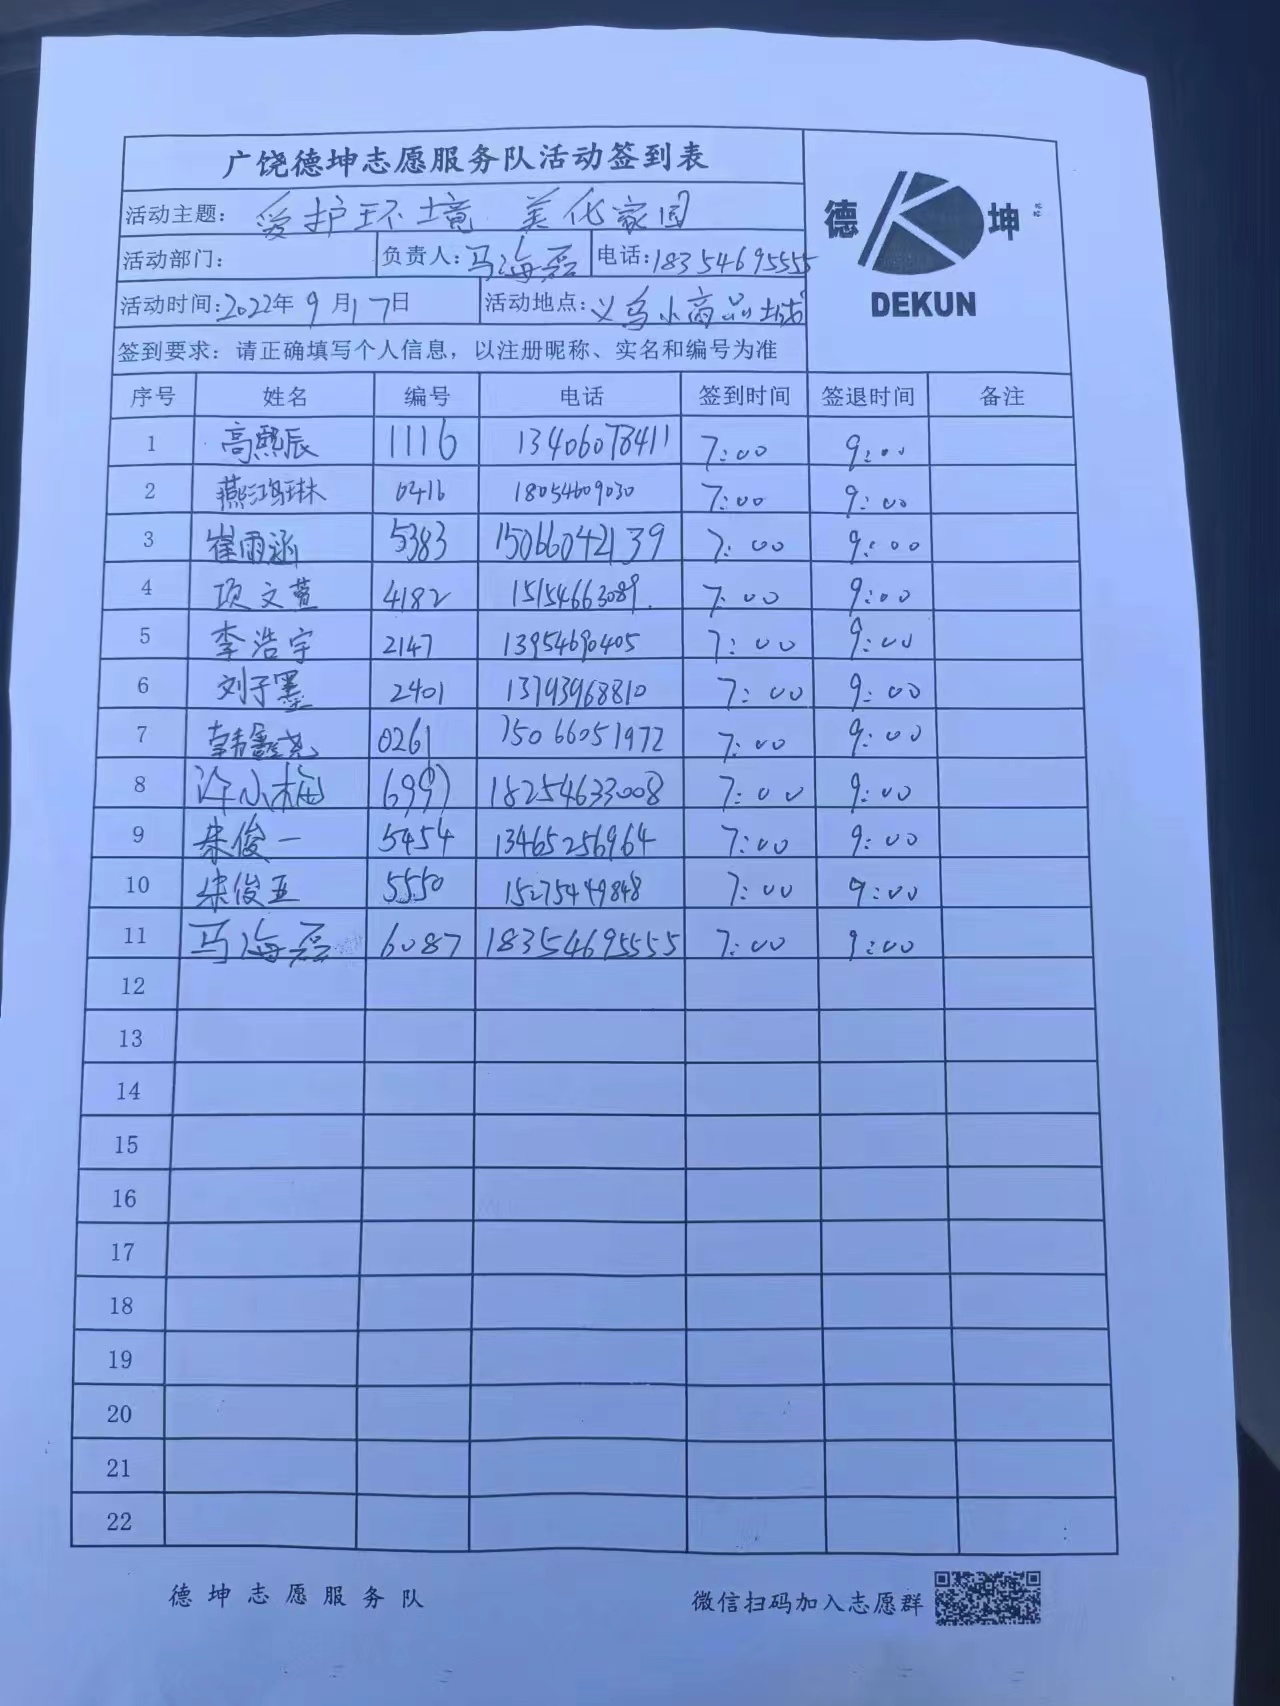 广饶德坤志愿服务队活动签到表
德 坤
DEKUN
活动主题：爱护环境 美化家园
活动部门： 负责人：马海磊 电话：18354695555
活动时间：2022年9月17日 活动地点：义乌小商品城
签到要求：请正确填写个人信息，以注册昵称、实名和编号为准
序号 姓名 编号 电话 签到时间 签退时间 备注
1 高熙辰 1116 13406078411 7:00 9:00
2 燕鸿琳 0416 18054609030 7:00 9:00
3 崔雨涵 5383 15066042139 7:00 9:00
4 项文萱 4182 15154663089. 7:00 9:00
5 李浩宇 2147 13954690405 7:00 9:00
6 刘子墨 2401 13793968810 7:00 9:00
7 韩鑫尧 0261 15066051972 7:00 9:00
8 徐小梅 6997 18254633008 7:00 9:00
9 朱俊一 5454 13465256964 7:00 9:00
10 朱俊亚 5550 15275449848 7:00 9:00
11 马海磊 6087 18354695555 7:00 9:00
12
13
14
15
16
17
18
19
20
21
22
德坤志愿服务队 微信扫码加入志愿群